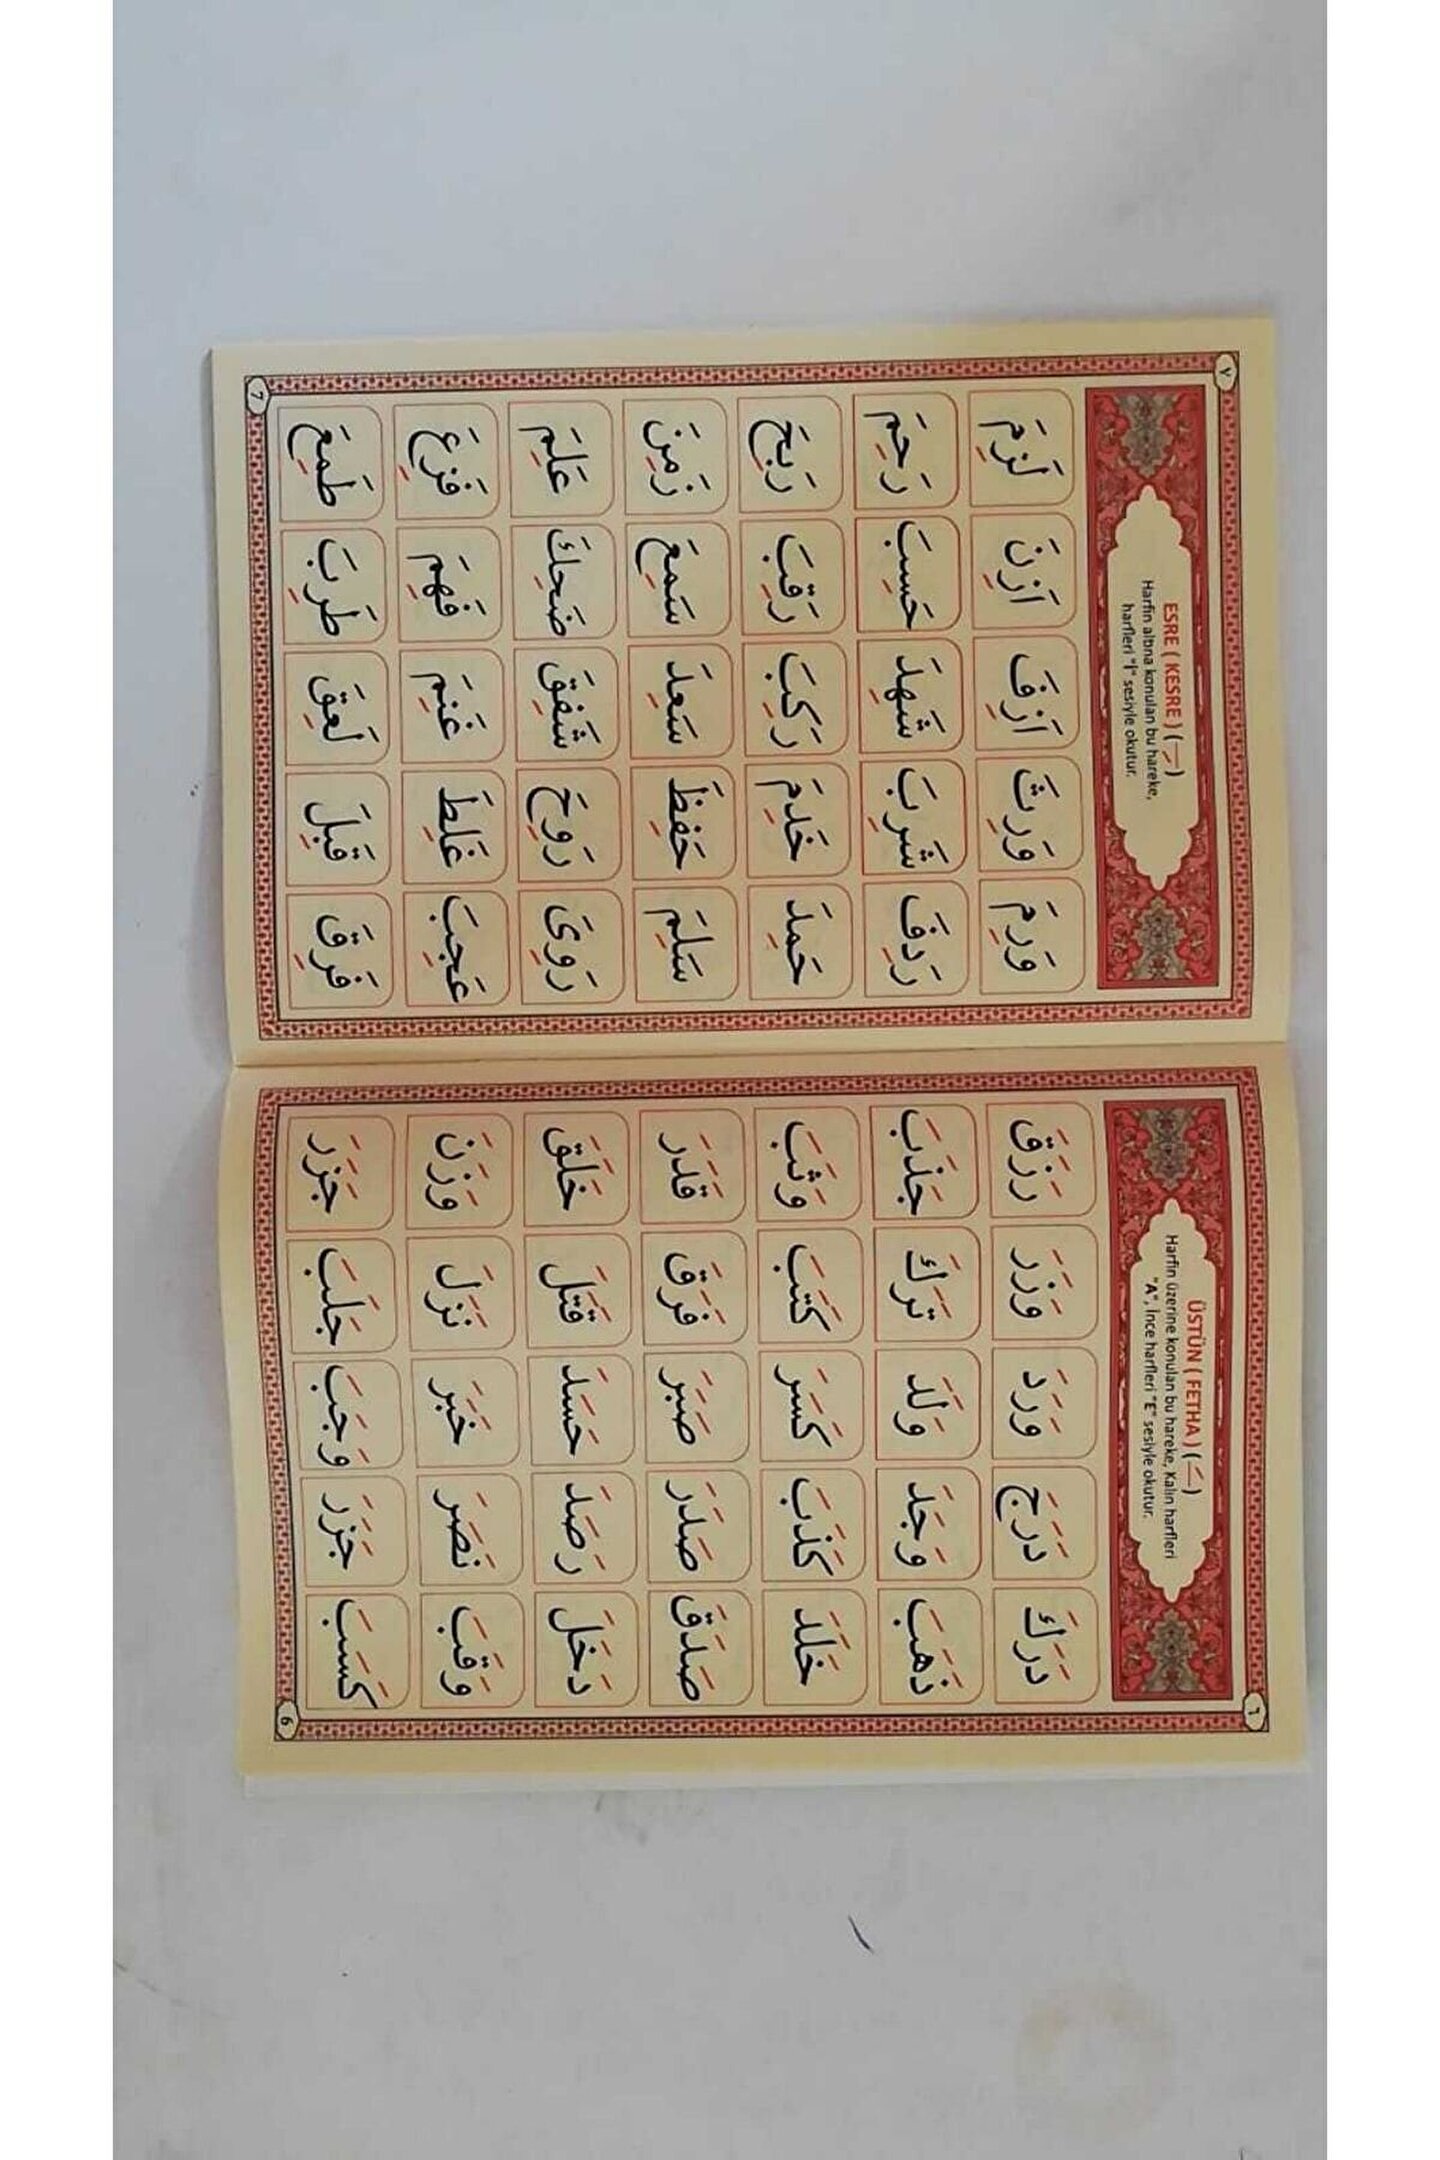 ٦
ÜSTÜN ( FETHA ) ( ـَ )
Harfin üzerine konulan bu hareke, Kalın harfleri
"A", İnce harfleri "E" sesiyle okutur.
دَرَكَ دَرَجَ وَرَدَ وَزَرَ رَزَقَ
ذَهَبَ وَجَدَ وَلَدَ تَرَكَ جَذَبَ
خَلَدَ كَذَبَ كَسَرَ كَتَبَ وَثَبَ
صَدَقَ صَدَرَ صَبَرَ فَرَقَ قَدَرَ
دَخَلَ رَصَدَ حَسَدَ قَتَلَ خَلَقَ
وَقَبَ نَصَرَ خَبَرَ نَزَلَ وَزَنَ
كَسَبَ جَزَرَ وَجَبَ جَلَبَ جَزَرَ
6
٧
ESRE ( KESRE ) ( ـِ )
Harfin altına konulan bu hareke,
harfleri "İ" sesiyle okutur.
وَرِمَ وَرِثَ اَزِفَ اَزِنَ لَزِمَ
رَدِفَ شَرِبَ شَهِدَ حَسِبَ رَحِمَ
حَمِدَ خَدِمَ رَكِبَ رَقِبَ رَبِحَ
سَلِمَ حَفِظَ سَعِدَ سَمِعَ زَمِنَ
رَوِىَ رَوِحَ شَفِقَ ضَحِكَ عَلِمَ
عَجِبَ غَلِطَ غَنِمَ فَهِمَ فَزِعَ
فَرِقَ قَبِلَ لَعِقَ طَرِبَ طَمِعَ
7